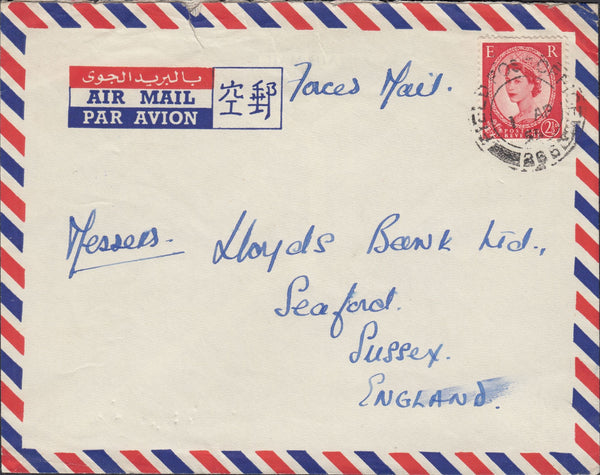 بالبريد الجوى
AIR MAIL
PAR AVION
空郵
Forces Mail.
E R
POSTAGE
REVENUE
2½D
FIELD POST OFFICE
AP
Messers. Lloyds Bank Ltd.,
Seaford.
Sussex.
ENGLAND.